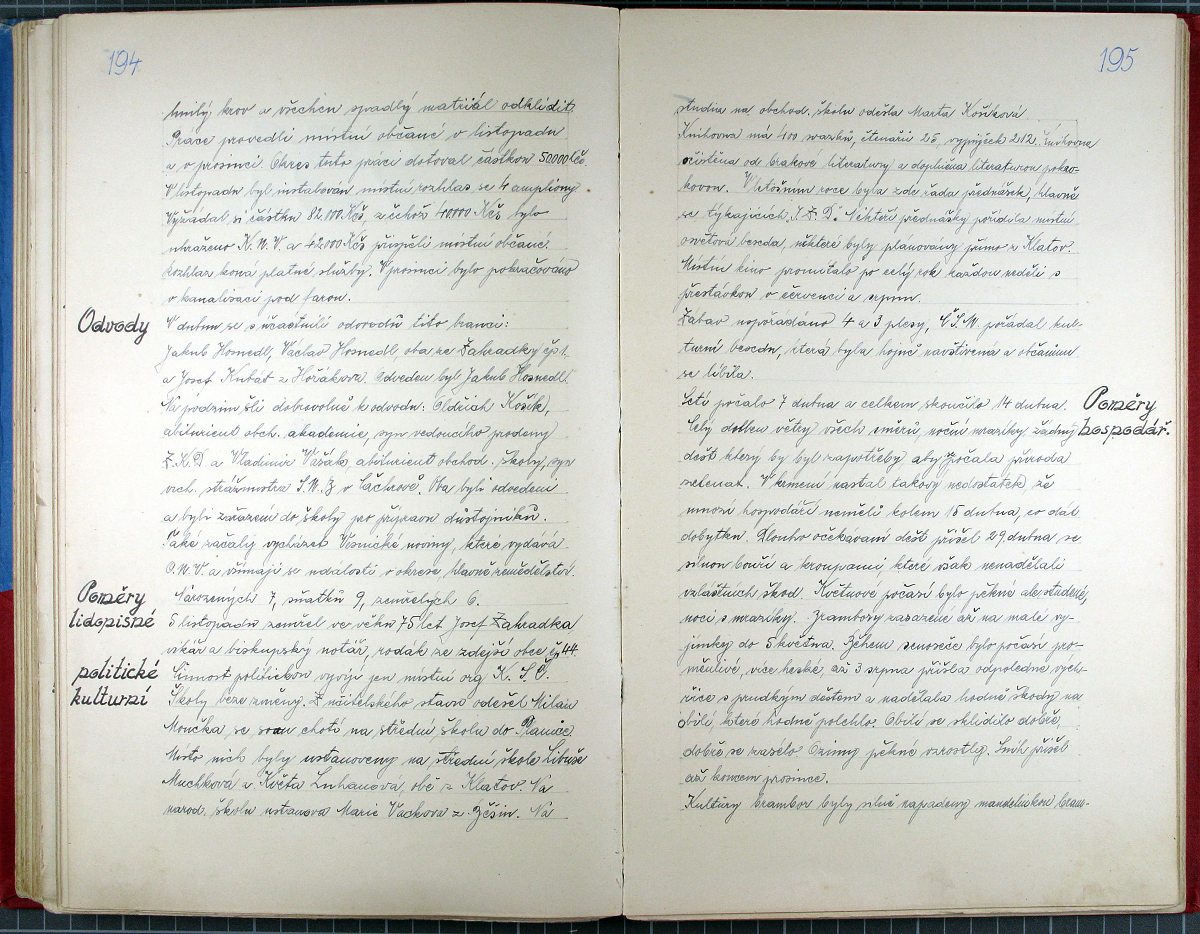 194
hnilý krov a všechen spadlý materiál odklidit.
Práce provedli místní občané v listopadu
a v prosinci. Okres tuto práci dotoval částkou 50000 Kčs
V listopadu byl instalován místní rozhlas se 4 ampliony
Vyžádal si částku 82.000 Kčs, z čehož 40.000 Kčs bylo
uhraženo K.N.V. a 42.000 Kčs přispěli místní občané.
Rozhlaz koná platné služby. V prosinci bylo pokračováno
v kanalisaci pod farou.
Odvody
V dubnu se súčastnili odovodů tito branci:
Jakub Hosnedl, Václav Hosnedl, oba ze Zahradky čp 1.
a Josef Kubát z Hořákova. Odveden byl Jakub Hosnedl.
Na podzim šli dobrovolně k odvodu: Oldřich Košík,
abiturient obch. akademie, syn vedoucího prodejny
Z.K.D a Vladimír Vašák abiturient obchod. školy, syn
vrch. strážmistra S.N.B v Čáchrově. Oba byli odvedeni
a byli zařazeni do školy pro přípravu důstojníků.
Také začaly vycházet Vesnické noviny, které vydává
O.N.V. a všímají si událostí v okrese, hlavně zemědělství.
Poměry
lidopisné
Narozených 7, sňatků 9, zemřelých 6.
5 listopadu zemřel ve věku 75 let Josef Zahradka
vikář a biskupský notář, rodák ze zdejší obce čp 44.
politické
kulturní
Činnost politickou vyvíjí jen místní org. K.S.Č.
Školy beze změny. Z učitelského stavu odešel Milan
Moučka se svou chotí na střední školu do Plánice.
Místo nich byly ustanoveny na střední škole Libuše
Muchková a Květa Luhanová, obě z Klatov. Na
národ. školu ustanova Marie Vacková z Běšin. Na
195
studia na obchod. školu odešla Marta Košíková.
Knihovna má 400 svazků, čtenářů 25, výpůjček 212. Knihovna
očištěna od brakové literatury a doplněna literaturou pokro-
kovou. V letošním roce byla zde řada přednášek, hlavně
se týkajících J.Z.D. Některé přednášky pořídila místní
osvětová beseda, některé byly plánovány přímo z Klatov.
Místní kino promítalo po celý rok každou neděli s
přestávkou v červenci a srpnu.
Zábav uspořádáno 4 a 3 plesy, Č.S.M. pořádal kul-
turní besedu, která byla hojně navštívená a občanům
se líbila.
Poměry
hospodář.
Setí počalo 7 dubna a celkem skončilo 14 dubna.
Celý duben větry všech směrů noční mrazíky, žádný
dešť který by byl zapotřeby aby počala příroda
zelenat. V krmení nastal takový nedostatek, že
mnozí hospodáři neměli kolem 15 dubna, co dát
dobytku. Dlouho očekávaní dešť přišel 29. dubna se
silnou bouří a kroupami které však nenadělali
vzláštních škod. Květnové počasí bylo pěkné ale studené,
noci s mrazíky. Brambory zasazené až na malé vý-
jimky do 5 května. Během senoseče bylo počasí pro-
měnlivé, více hezké, až 3 srpna přišla odpoledne vich-
řice s prudkým deštěm a nadělala hodně škody na
obilí, které hodně polehlo. Obilí se sklidilo dobře,
dobře se zasélo. Ozimy pěkně vzrostly. Sníh přišel
až koncem prosince.
Kultury brambor byly silně napadeny mandelinkou bram-